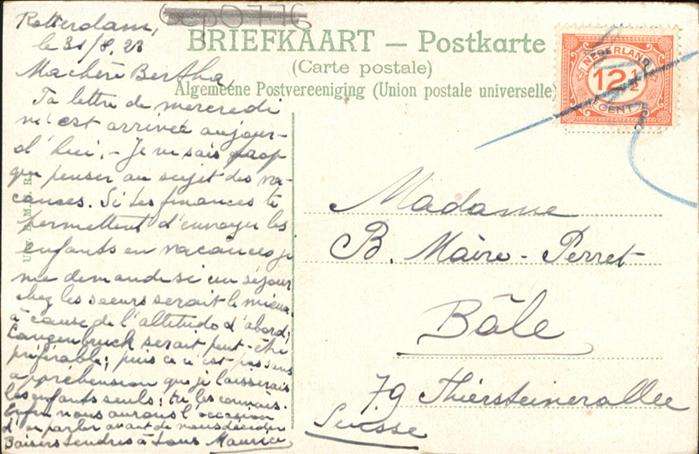 Rotterdam,
le 31/8.23
Ma chère Bertha,
Ta lettre de mercredi
m'est arrivée aujour-
d'hui. - Je ne sais trop
que penser au sujet des va-
cances. Si tes finances te
permettent d'envoyer les
enfants en vacances je
me demande si un séjour
chez les soeurs serait le mieux
à cause de l'altitude d'abord;
Langenbruck serait peut-être
préférable; puis ce n'est pas sans
appréhension que je laisserais
les enfants seuls; tu les connais.
Enfin nous aurons l'occasion
d'en parler avant de nous décider
Baisers tendres à tous Maurice
BRIEFKAART – Postkarte
(Carte postale)
Algemeene Postvereeniging (Union postale universelle)
NEDERLAND
12½
CENT
Madame
B. Maire-Perret
Bâle
79 Thiersteinerallee
Suisse